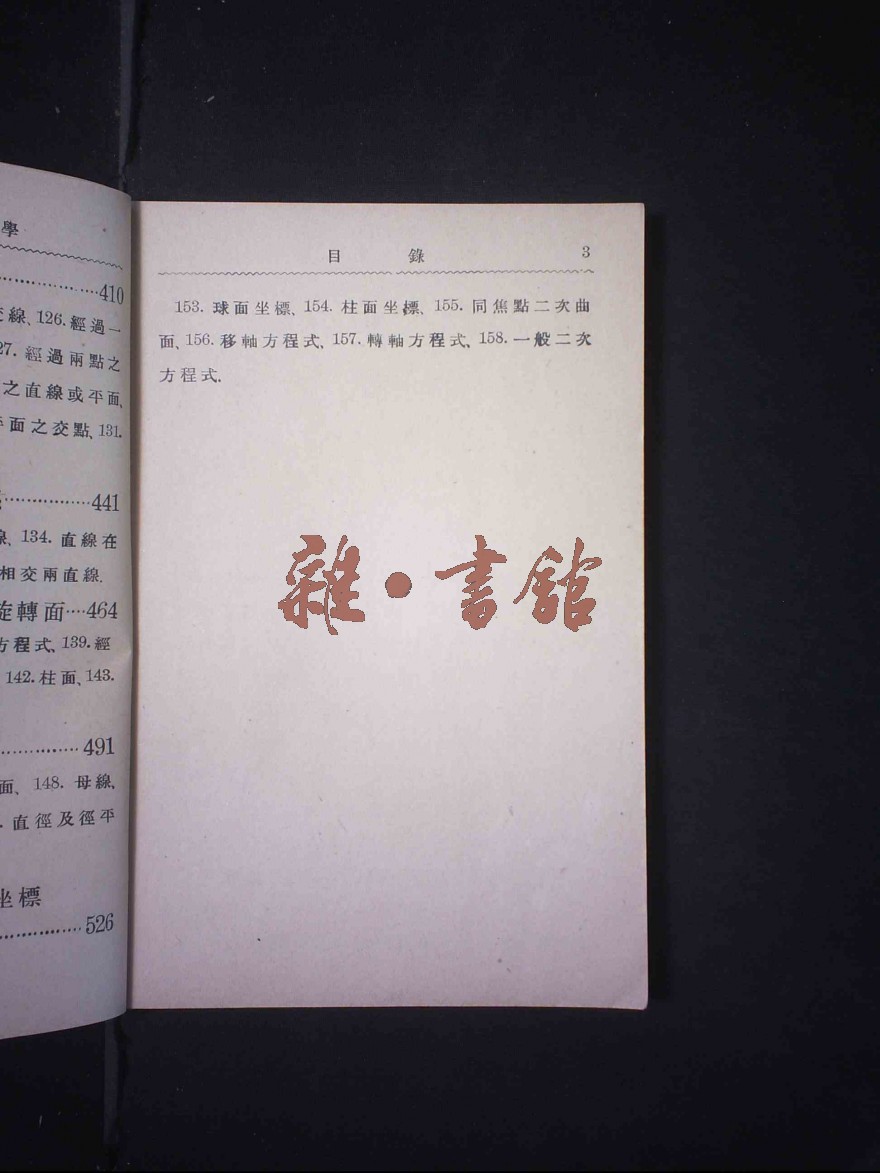 學
410
線、126. 經過一
27. 經過兩點之
之直線或平面、
面之交點、131.
441
134. 直線在
相交兩直線.
旋轉面····464
方程式、139. 經
142. 柱面、143.
491
面、 148. 母線、
直徑及徑平
坐標
526
目 錄 3
153. 球面坐標、154. 柱面坐標、155. 同焦點二次曲
面、156. 移軸方程式、157. 轉軸方程式、158. 一般二次
方程式.
雜·書館